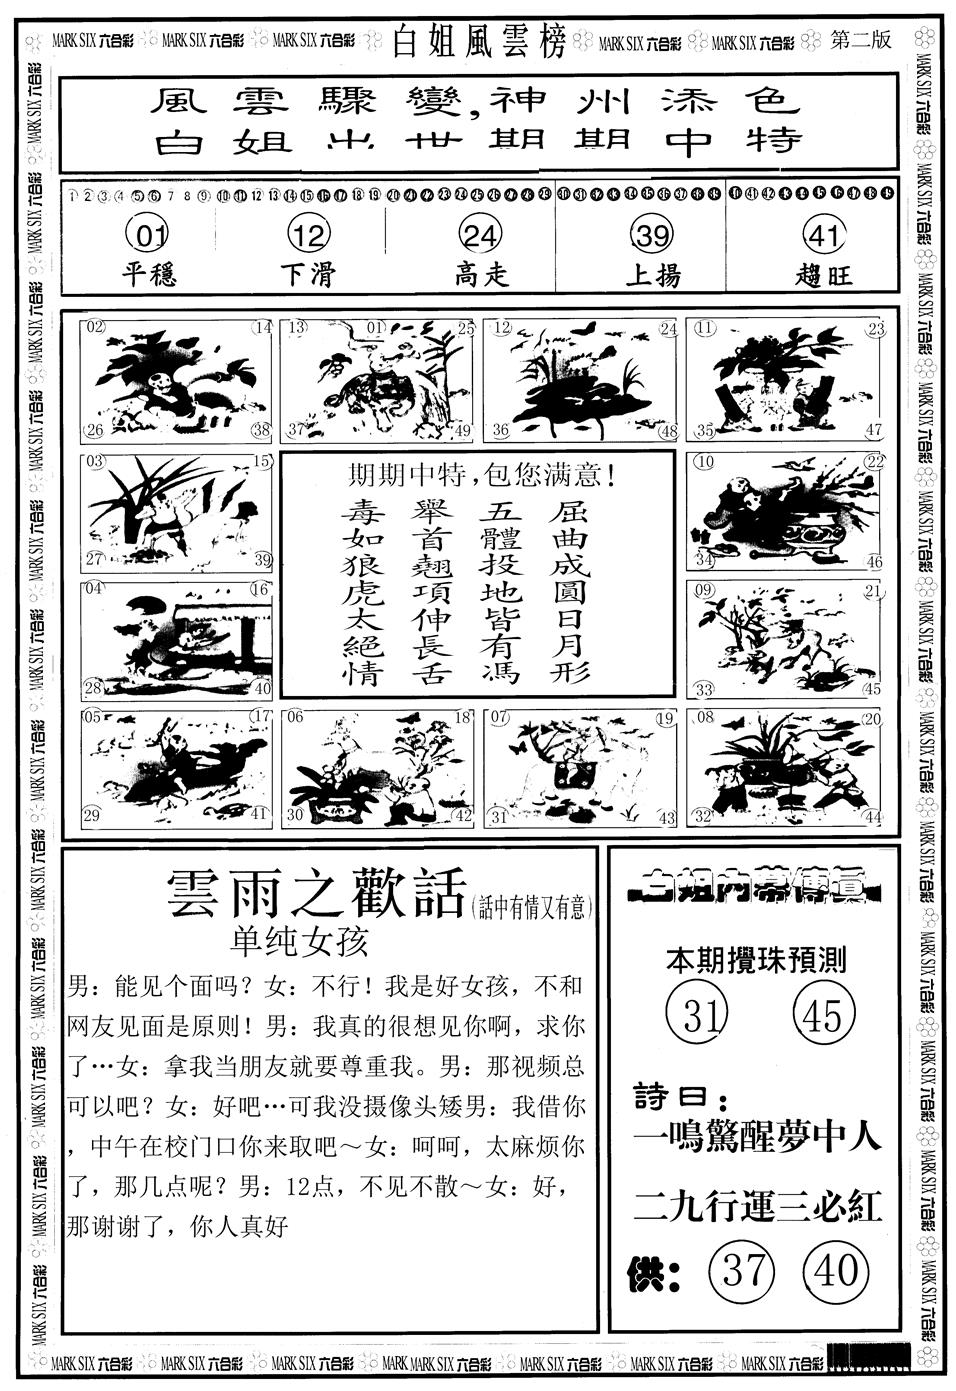 MARK SIX 六合彩 MARK SIX 六合彩 MARK SIX 六合彩 白姐風雲榜 MARK SIX 六合彩 MARK SIX 六合彩 第二版
風雲驟變,神州添色
白姐出世期期中特
1 2 3 4 5 6 7 8 9 10 11 12 13 14 15 16 17 18 19 20 21 22 23 24 25 26 27 28 29 30 31 32 33 34 35 36 37 38 39 40 41 42 43 44 45 46 47 48 49
01 12 24 39 41
平穩 下滑 高走 上揚 趨旺
02 14 13 01 25 12 24 11 23
26 38 37 49 36 48 35 47
03 15 10 22
27 39 34 46
04 16 09 21
28 40 33 45
05 17 06 18 07 19 08 20
29 41 30 42 31 43 32 44
期期中特,包您满意!
屈曲成圓日月形
五體投地皆有馮
舉首翹項伸長舌
毒如狼虎太絕情
雲雨之歡話(話中有情又有意)
单纯女孩
男：能见个面吗？女：不行！我是好女孩，不和
网友见面是原则！男：我真的很想见你啊，求你
了…女：拿我当朋友就要尊重我。男：那视频总
可以吧？女：好吧…可我没摄像头矮男：我借你
，中午在校门口你来取吧～女：呵呵，太麻烦你
了，那几点呢？男：12点，不见不散～女：好，
那谢谢了，你人真好
白姐内幕傳真
本期攪珠預測
31 45
詩曰：
一鳴驚醒夢中人
二九行運三必紅
供： 37 40
MARK SIX 六合彩 MARK SIX 六合彩 MARK SIX 六合彩 MARK MARK SIX 六合彩 MARK SIX 六合彩 MARK SIX 六合彩 MARK SIX 六合彩